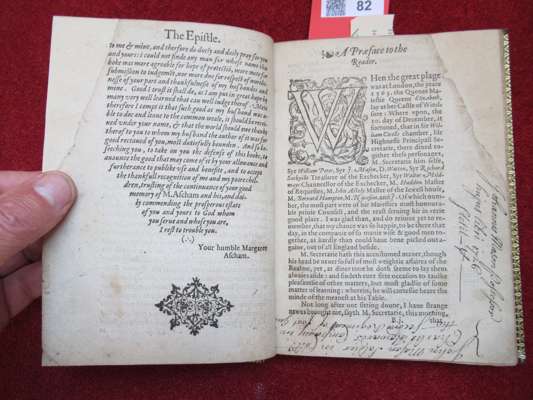 82
The Epistle.
to me & mine, and therfore do dayly and dayly pray for you
and yours: I could not finde any man for whose name this
boke was more agreable for hope of protection, more meete for
submission to iudgement, nor more due for respect of worthi-
nesse of your part and thankfulnesse of my husbandes and
mine. Good I trust it shall do, as I am put in great hope by
many very well learned that can well iudge therof. Meete
therefore I compt it that such good as my husband was a-
ble to doe and leaue to the common weale, it should be recei-
ued vnder your name, & that the world should owe thanke
therof to you to whom my husband the author of it was for
good receyued of you, most dutiefully bounden. And so be-
seechyng you, to take on you the defense of the booke, to
auaunce the good that may come of it by your allowance and
furtherance to publike vse and benefite, and to accept
the thankfull recognition of me and my poore chil-
dren, trustyng of the continuance of your good
memory of M. Ascham and his, and dai-
ly commendyng the prosperous estate
of you and yours to God whom
you serue and whose you are,
I rest to trouble you.
(∴)
Your humble Margaret
Ascham.
A Præface to the
Reader.
WHen the great plage
was at London, the yeare
1563. the Quenes Ma-
iestie Queene Elizabeth,
lay at her Castle of Wind-
sore: Where vpon the
10. day of December, it
fortuned, that in Sir Wil-
liam Cicels chamber, hir
Highnesse Principall Se-
cretarie, there dined to-
gether these personages,
M. Secretarie him selfe,
Syr William Peter, Syr J. Mason, D. Wotton, Syr Richard
Sackuille Treasurer of the Exchecker, Syr Walter Mild-
may Chauncellor of the Exchecker, M. Haddon Master
of Requestes, M. John Astely Master of the Iewell house,
M. Bernard Hampton, M. Nicasius, and J. Of which number,
the most part were of hir Maiesties most honoura-
ble priuie Counsell, and the rest seruing hir in verie
good place. I was glad than, and do reioice yet to re-
member, that my chance was so happie, to be there that
day, in the companie of so manie wise & good men to-
gether, as hardly than could haue beene picked out a-
gaine, out of all England beside.
M. Secretarie hath this accustomed maner, though
his head be neuer so full of most weightie affaires of the
Realme, yet, at diner time he doth seeme to lay them
alwaies aside: and findeth euer fitte occasion to taulke
pleasantlie of other matters, but most gladlie of some
matter of learning: wherein, he will curteslie heare the
minde of the meanest at his Table.
Not long after our sitting doune, I haue strange
newes brought me, sayth M. Secretarie, this morning,
B.j. that